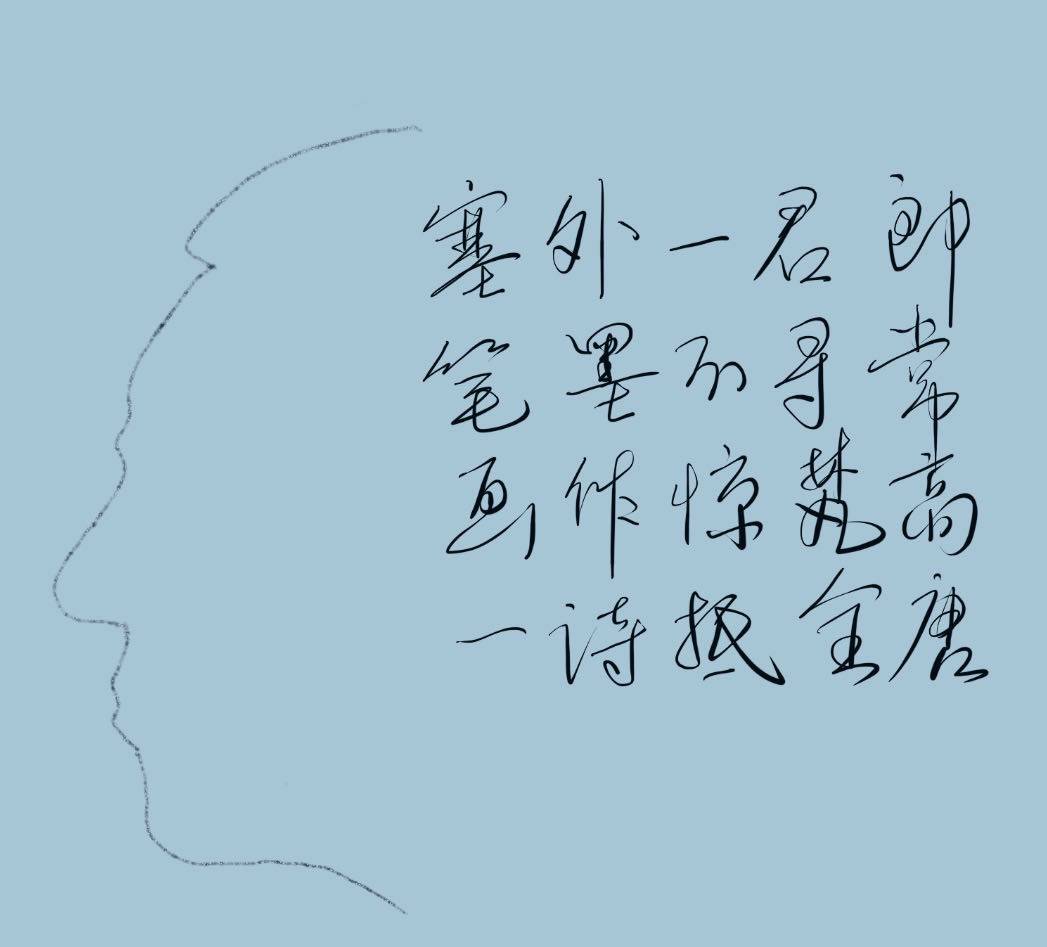 塞外一君郎
笔墨不寻常
画作惊梵高
一诗抵全唐